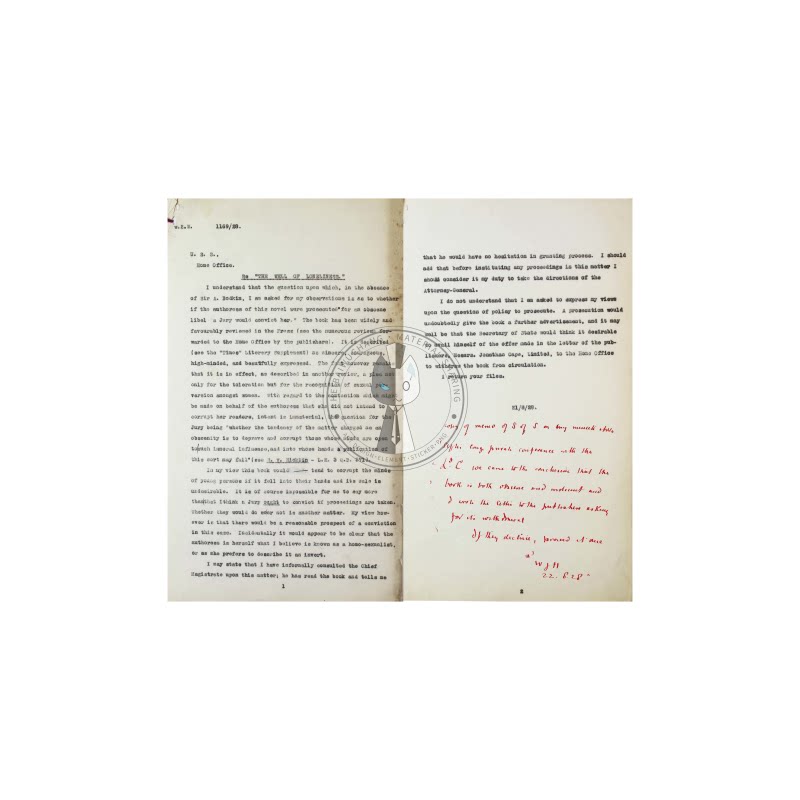 1169/28.
Home Office.
Re "THE WELL OF LONELINESS."
I understand that the question upon which, in the absence
of Sir A. Bodkin, I am asked for my observations is as to whether
if the authoress of this novel were prosecuted "for an obscene
libel a Jury would convict her." The book has been widely and
favourably reviewed in the Press (see the numerous reviews for-
warded to the Home Office by the publishers). It is described
(see the "Times" Literary Supplement) as sincere, courageous,
high-minded, and beautifully expressed. The fact however remains
that it is in effect, as described in another review, a plea not
only for the toleration but for the recognition of sexual per-
version amongst women. With regard to the contention which might
be made on behalf of the authoress that she did not intend to
corrupt her readers, intent is immaterial, the question for the
Jury being "whether the tendency of the matter charged as an
obscenity is to deprave and corrupt those whose minds are open
to such immoral influence, and into whose hands a publication of
this sort may fall" (see
In my view this book would tend to corrupt the minds
of young persons if it fell into their hands and its sale is
undesirable. It is of course impossible for me to say more
than that I think a Jury ought to convict if proceedings are taken.
Whether they would do so may not is another matter. My view how-
ever is that there would be a reasonable prospect of a conviction
in this case. Incidentally it would appear to be clear that the
authoress is herself what I believe is known as a homo-sexualist,
or as she prefers to describe it an invert.
I may state that I have informally consulted the Chief
Magistrate upon this matter; he has read the book and tells me
1
that he would have no hesitation in granting process. I should
add that before instituting any proceedings in this matter I
should consider it my duty to take the directions of the
Attorney-General.
I do not understand that I am asked to express my views
upon the question of policy to prosecute. A prosecution would
undoubtedly give the book a further advertisement, and it may
well be that the Secretary of State would think it desirable
to avail himself of the offer made in the letter of the pub-
lishers, Messrs. Jonathan Cape, Limited, to the Home Office
to withdraw the book from circulation.
I return your files.
21/8/28.
Copy of minute of S of S on
After long private conference with the
Ld C we came to the conclusion that the
book is both obscene and indecent and
I wrote the letter to the publishers asking
for its withdrawal
If they decline, proceed at once
WJH
22.8.28
2
MATERIAL
ELEMENT·STICKER·PNG